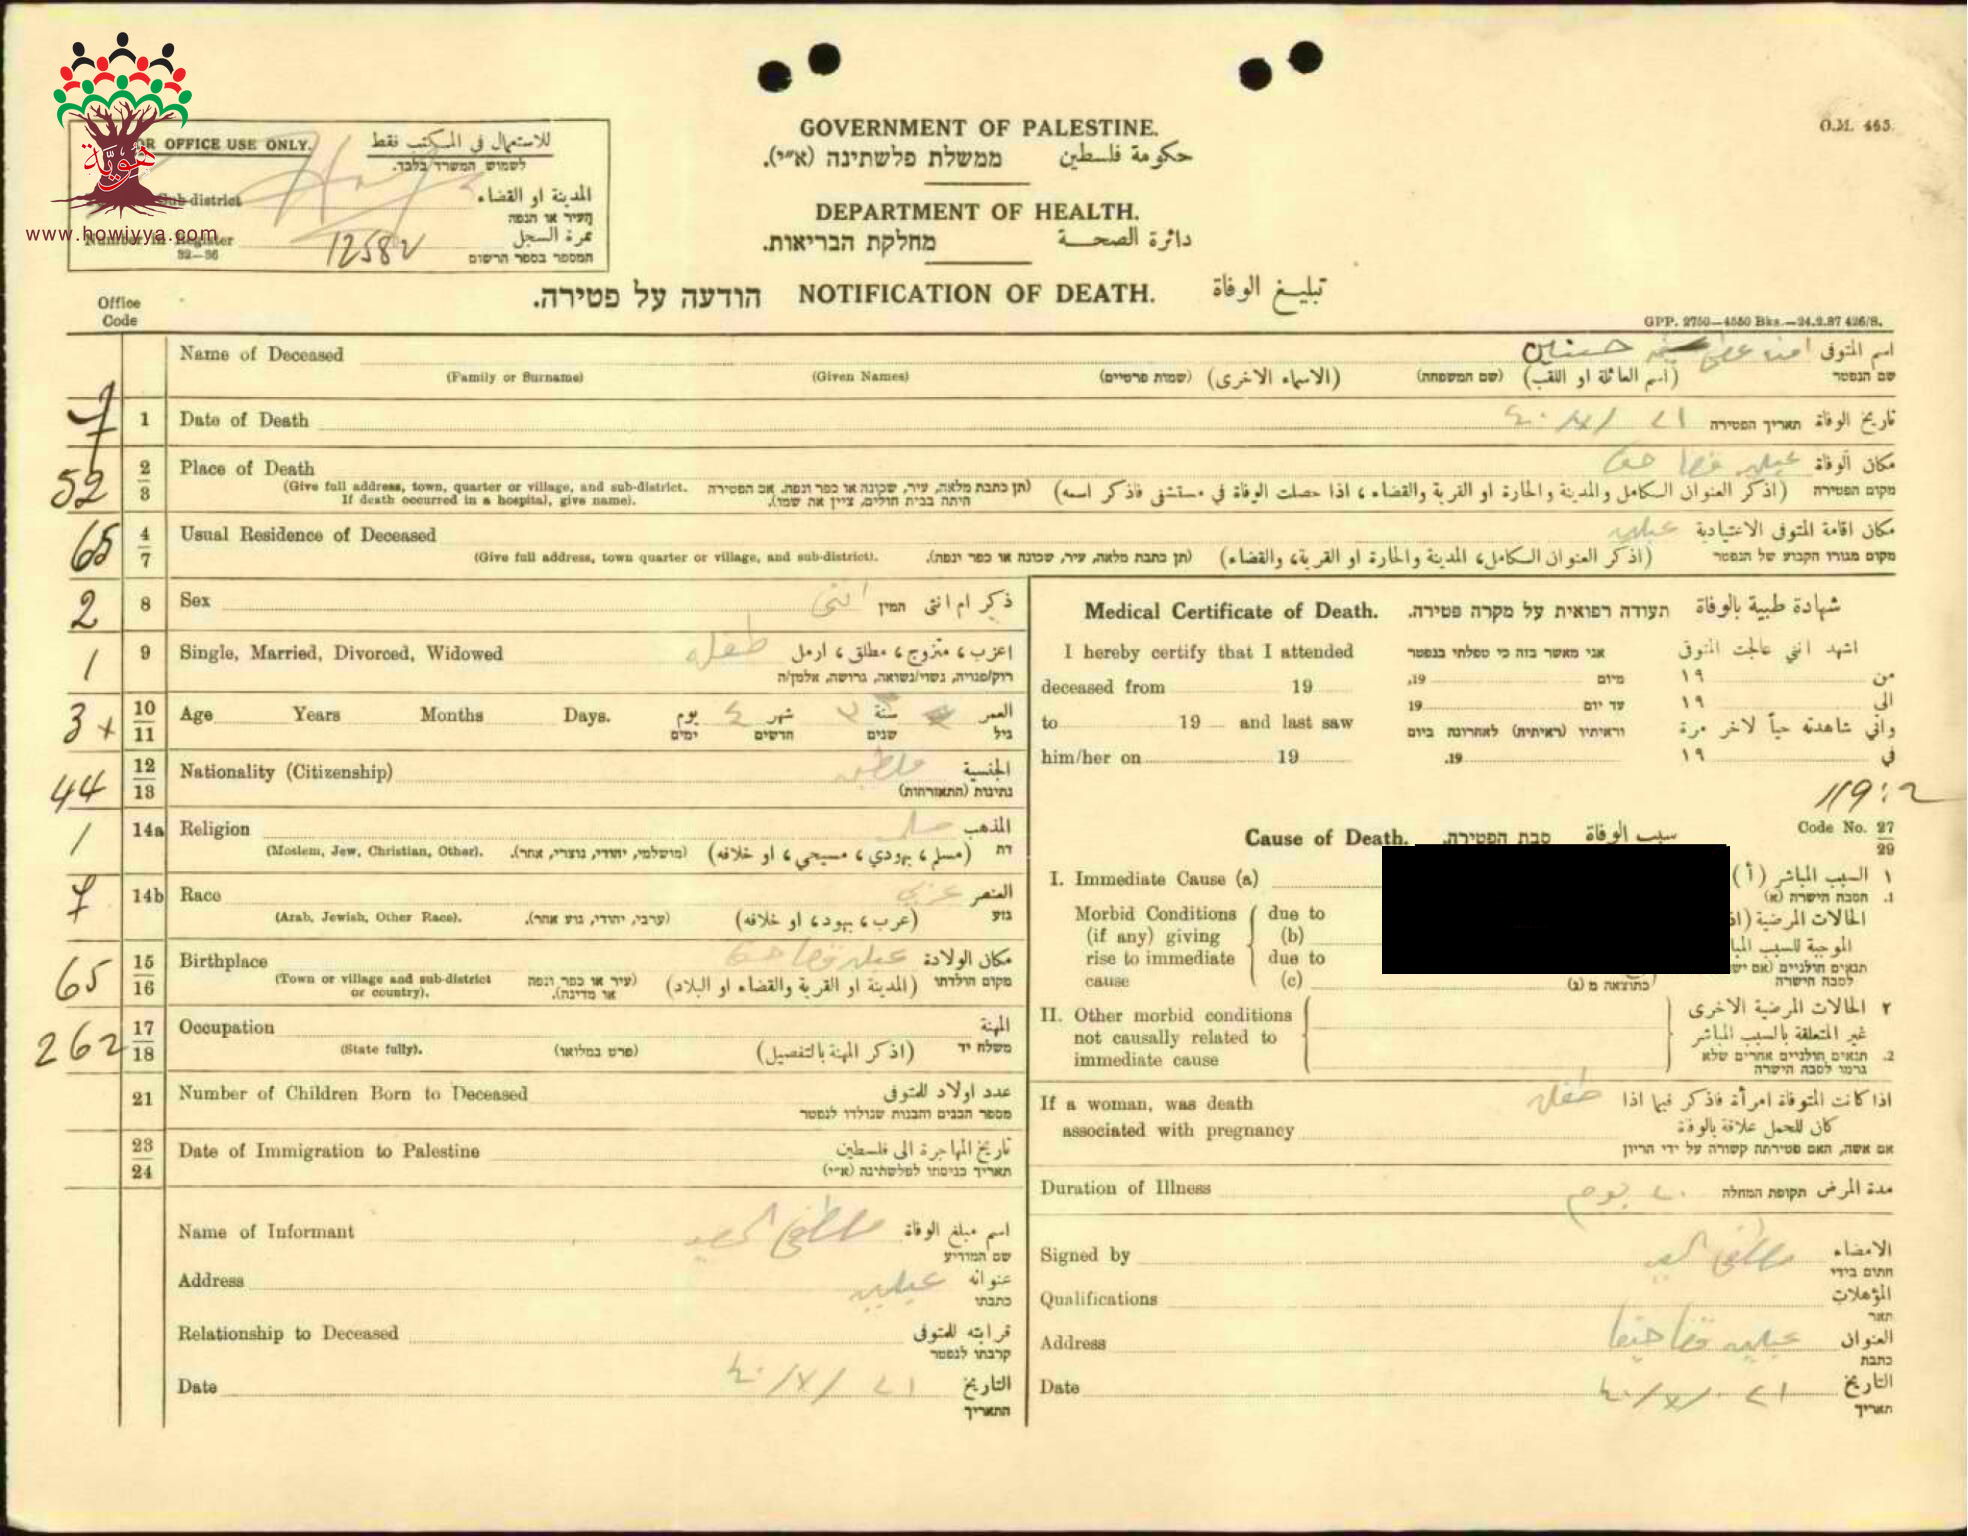 هويّة
www.howiyya.com
OR OFFICE USE ONLY. للاستعمال في المكتب فقط
לשמוש המשרד בלבד.
Sub-district المدينة او القضاء
העיר או הנפה
Number in Register 12582 نمرة السجل
32—36 המספר בספר הרשום
GOVERNMENT OF PALESTINE.
ממשלת פלשתינה (א״י). حكومة فلسطين
DEPARTMENT OF HEALTH.
מחלקת הבריאות. دائرة الصحة
O.M. 465.
הודעה על פטירה. NOTIFICATION OF DEATH. تبليغ الوفاة
Office
Code
GPP. 2750—4550 Bks.—24.2.37 426/S.
Name of Deceased حسنين امنه اسم المتوفى
(Family or Surname) (Given Names) (שמות פרטיים) (الاسماء الاخرى) (שם המשפחה) (اسم العائلة او اللقب) שם הנפטר
7 1 Date of Death ٢١ / ٧ / ٤٠ תאריך הפטירה تاريخ الوفاة
52 2 3 Place of Death مكان الوفاة
(Give full address, town, quarter or village, and sub-district. (תן כתבת מלאה, עיר, שכונה או כפר ונפה. אם הפטירה (اذكر العنوان الكامل والمدينة والحارة او القرية والقضاء، اذا حصلت الوفاة في مستشفى فاذكر اسمه) מקום הפטירה
If death occurred in a hospital, give name). היתה בבית חולים, ציין את שמו).
65 4 7 Usual Residence of Deceased مكان اقامة المتوفى الاعتيادية
(Give full address, town quarter or village, and sub-district). (תן כתבת מלאה, עיר, שכונה או כפר ונפה). (اذكر العنوان الكامل، المدينة والحارة او القرية، والقضاء) מקום מגורו הקבוע של הנפטר
2 8 Sex انثى המין ذكر ام انثى
1 9 Single, Married, Divorced, Widowed طفله اعزب، متزوج، مطلق، ارمل
רוק/פנויה, נשוי/נשואה, גרושה, אלמן/ה
3 + 10 11 Age Years Months Days. يوم ٤ شهر سنة العمر
ימים חדשים שנים גיל
44 12 13 Nationality (Citizenship) الجنسية
נתינות (התאזרחות)
1 14a Religion مسلم المذهب
(Moslem, Jew, Christian, Other). (מושלמי, יהודי, נוצרי, אחר). (مسلم، يهودي، مسيحي، او خلافه) דת
7 14b Race عربي العنصر
(Arab, Jewish, Other Race). (ערבי, יהודי, גזע אחר). (عرب، يهود، او خلافه) גזע
65 15 16 Birthplace مكان الولادة
(Town or village and sub-district (עיר או כפר ונפה (المدينة او القرية والقضاء او البلاد) מקום הולדתו
or country). או מדינה).
262 17 18 Occupation المهنة
(State fully). (פרט במלואו) (اذكر المهنة بالتفصيل) משלח יד
21 Number of Children Born to Deceased عدد اولاد للمتوفى
מספר הבנים והבנות שנולדו לנפטר
23 24 Date of Immigration to Palestine تاريخ المهاجرة الى فلسطين
תאריך כניסתו לפלשתינה (א״י)
Name of Informant مصطفى اسم مبلغ الوفاة
שם המודיע
Address عنوانه
כתבתו
Relationship to Deceased قرابته للمتوفى
קרבתו לנפטר
Date ٢١ / ٧ / ٤٠ التاريخ
התאריך
Medical Certificate of Death. תעודה רפואית על מקרה פטירה. شهادة طبية بالوفاة
I hereby certify that I attended אני מאשר בזה כי טפלתי בנפטר اشهد انني عالجت المتوفى
deceased from 19 מיום 19, من ١٩
to 19 and last saw עד יום 19 الى ١٩
וראיתיו (ראיתיה) לאחרונה ביום واني شاهدته حياً لاخر مرة
him/her on 19 19. في ١٩
119:2
Cause of Death. סבת הפטירה. سبب الوفاة Code No. 27 29
I. Immediate Cause (a) السبب المباشر (أ) ١
הסבה הישרה (א) .1
Morbid Conditions due to الحالات المرضية
(if any) giving (b) الموجبة للسبب
rise to immediate due to תנאים חולניים (אם
cause (c) כתוצאה מ (ג) לסבה הישרה
II. Other morbid conditions الحالات المرضية الاخرى ٢
not causally related to غير المتعلقة بالسبب المباشر
immediate cause תנאים חולניים אחרים שלא .2
גרמו לסבה הישרה
If a woman, was death طفله اذا كانت المتوفاة امرأة فاذكر فيما اذا
associated with pregnancy كان للحمل علاقة بالوفاة
אם אשה, האם פטירתה קשורה על ידי הריון
Duration of Illness ٢٠ يوم תקופת המחלה مدة المرض
Signed by مصطفى الامضاء
חתום בידי
Qualifications المؤهلات
תאר
Address قضا حيفا العنوان
כתבת
Date ٢١ / ٧ / ٤٠ التاريخ
תאריך